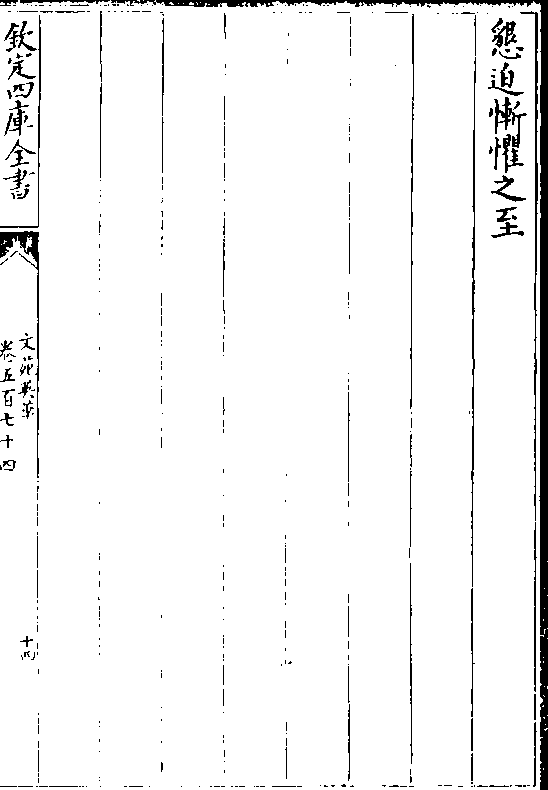 懇迫慚懼之至
欽定四庫全書
文苑英華
卷五百七十四
十四